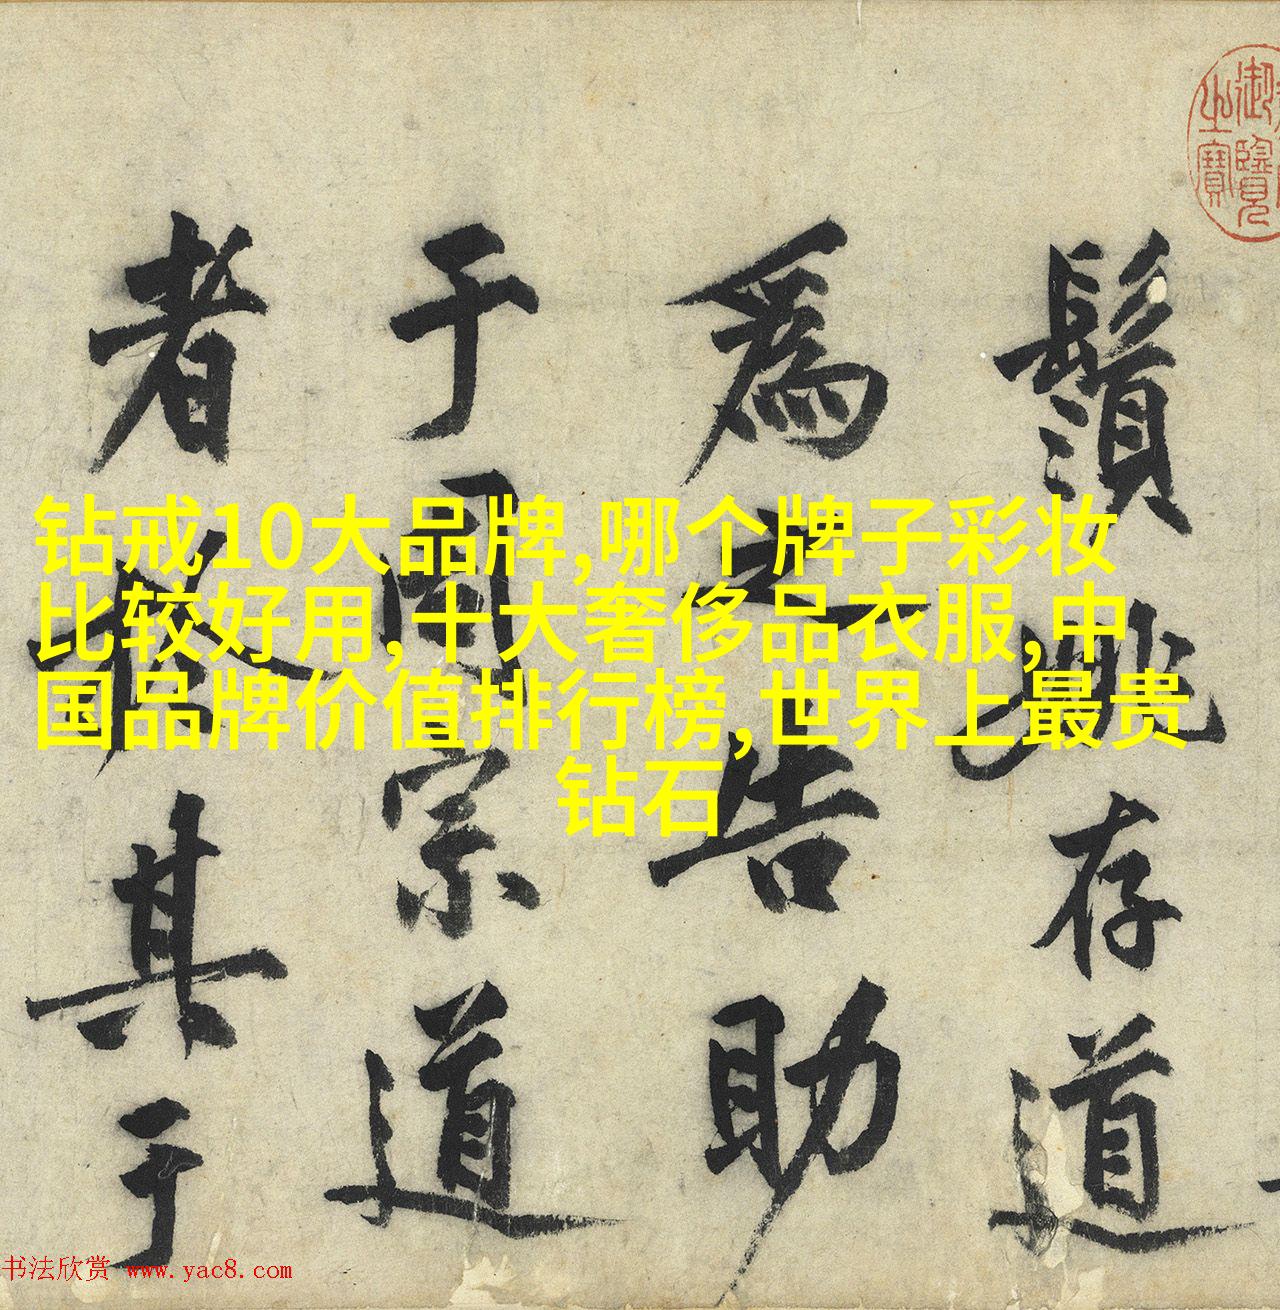 御覽
之寶
鬚姚存道
為之告助
于周宗道
者於其于
钻戒10大品牌,哪个牌子彩妆
比较好用,十大奢侈品衣服,中
国品牌价值排行榜,世界上最贵
钻石
书法欣赏 www.yac8.com